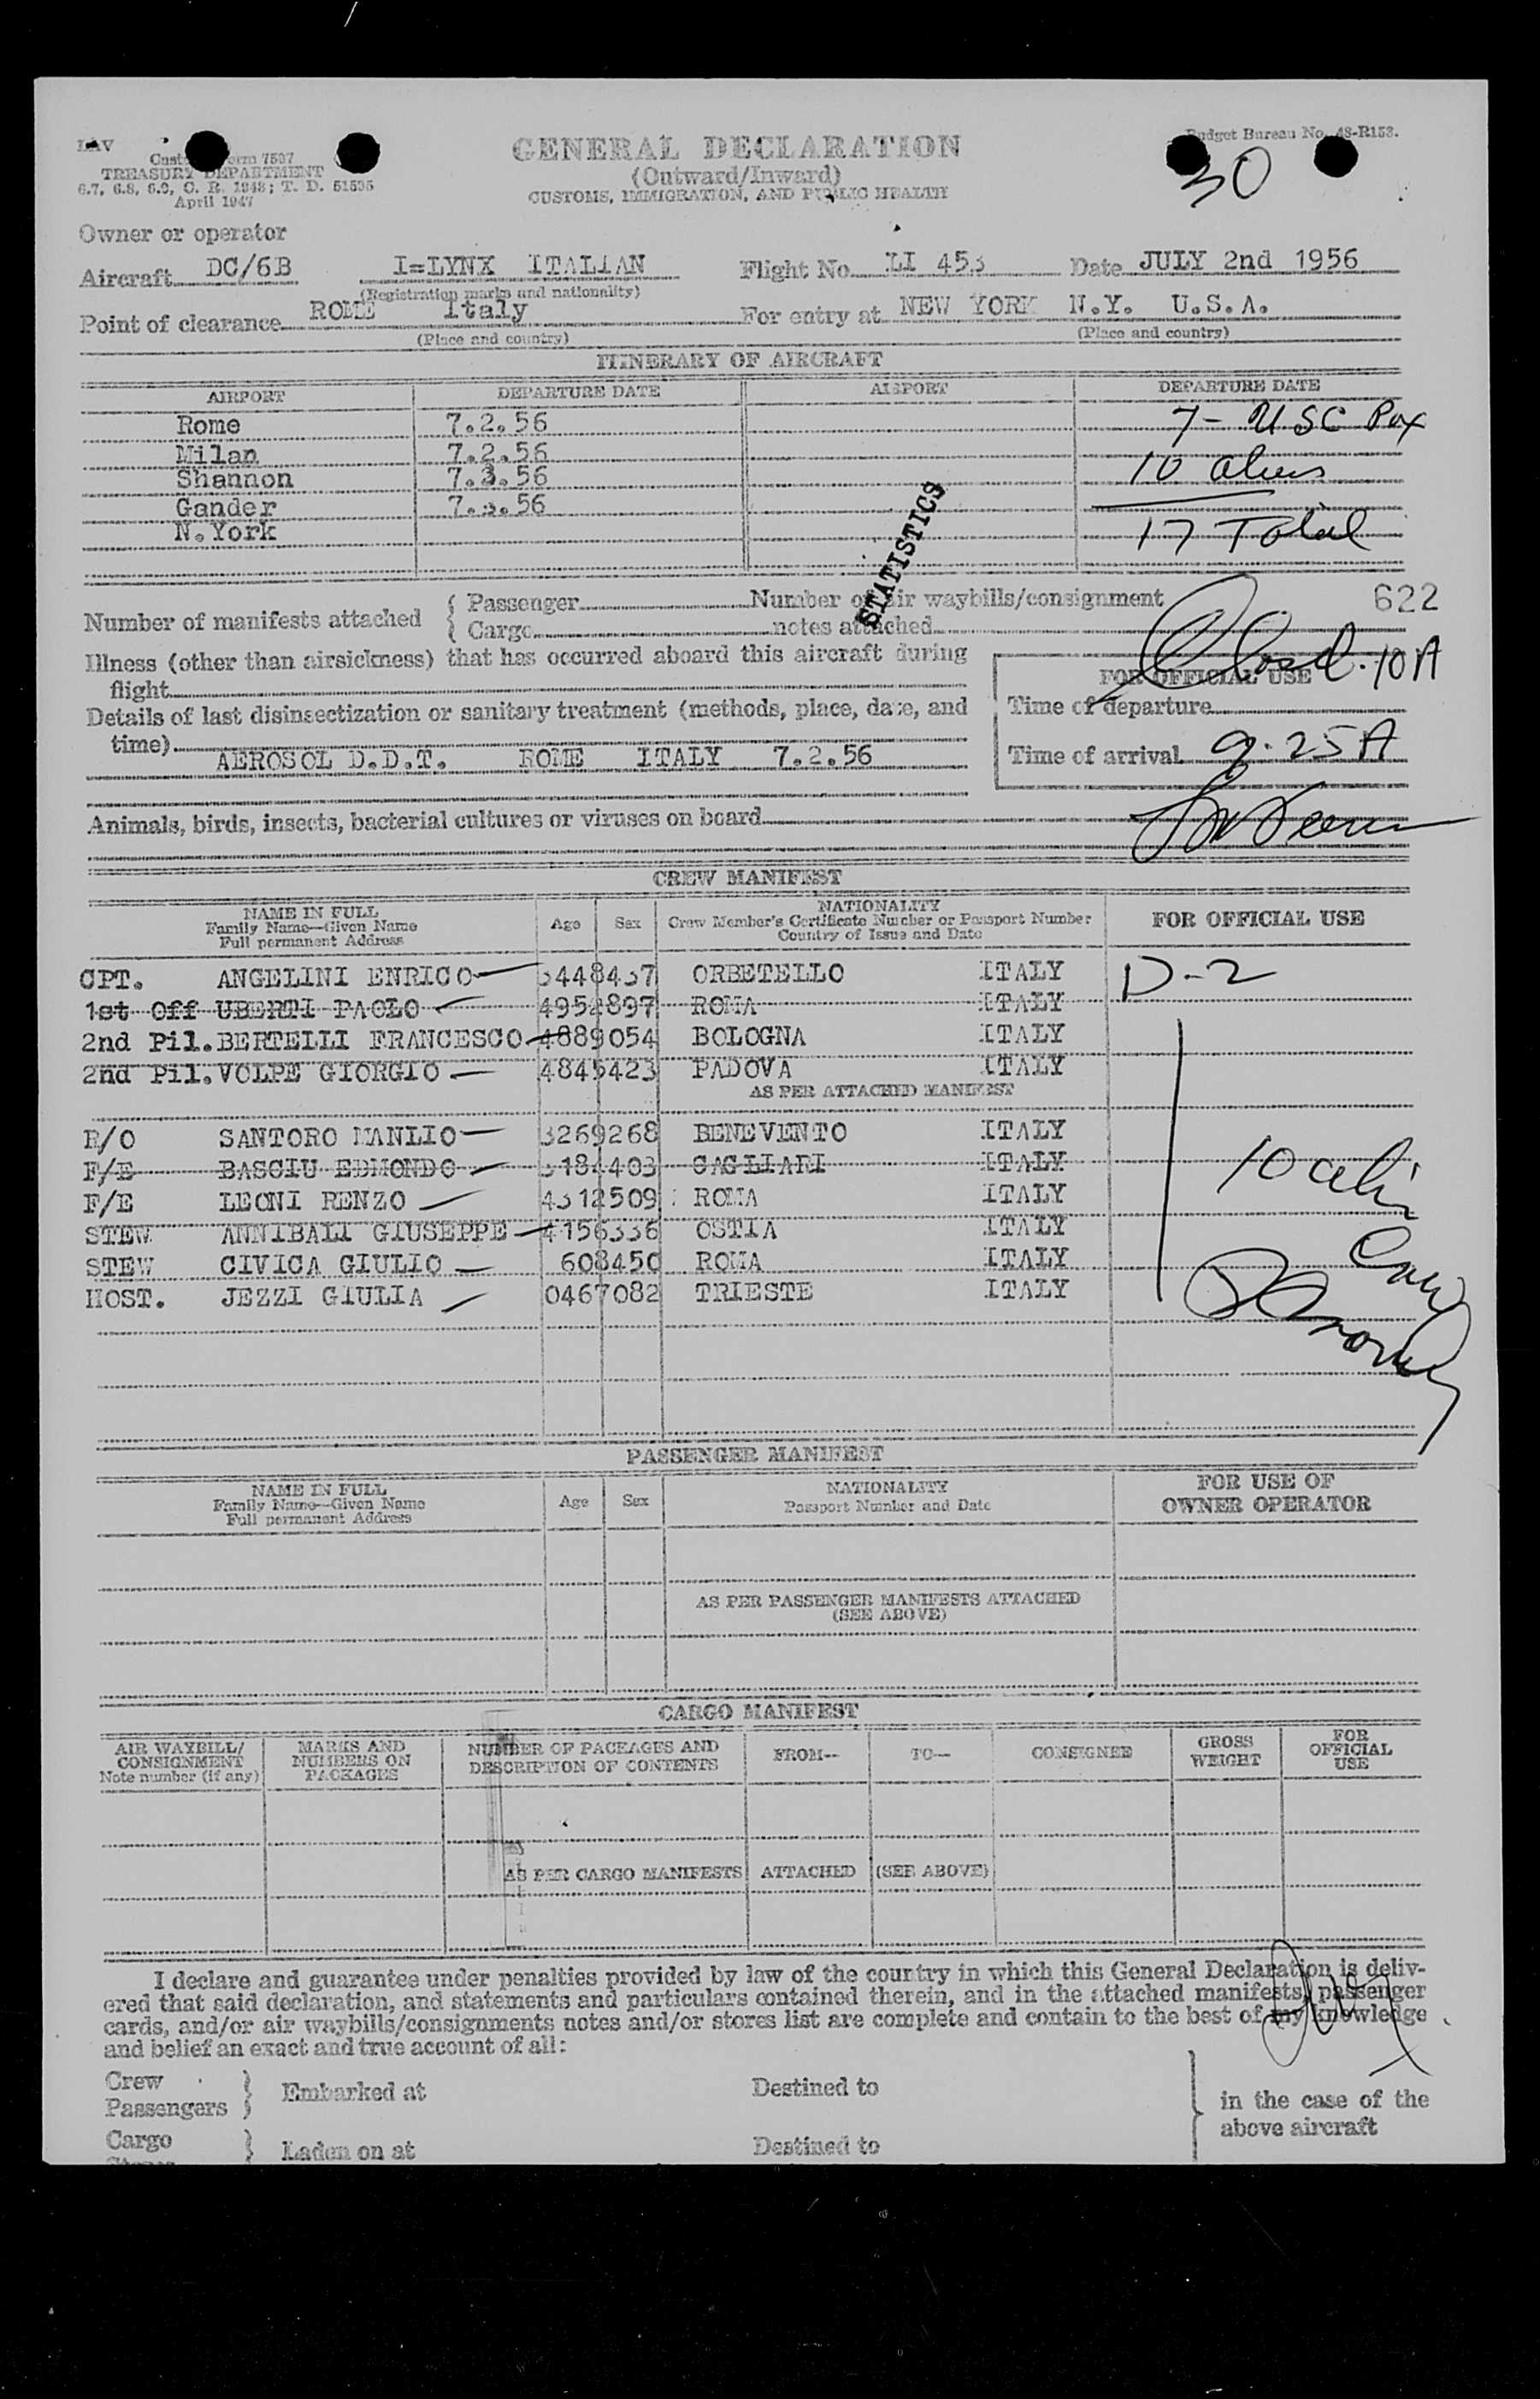 LAV
Budget Bureau No. 48-R153.
Customs Form 7507
TREASURY DEPARTMENT
6.7, 6.8, 6.9, C. R. 1943; T. D. 51595
April 1947
GENERAL DECLARATION
(Outward/Inward)
CUSTOMS, IMMIGRATION, AND PUBLIC HEALTH
30
Owner or operator
Aircraft DC/6B I=LYNX ITALIAN Flight No. LI 453 Date JULY 2nd 1956
(Registration marks and nationality)
Point of clearance ROME Italy For entry at NEW YORK N.Y. U.S.A.
(Place and country) (Place and country)
ITINERARY OF AIRCRAFT
AIRPORT DEPARTURE DATE AIRPORT DEPARTURE DATE
Rome 7.2.56 7- USC Pax
Milan 7.2.56
Shannon 7.3.56 10 aliens
Gander 7.3.56
N.York 17 Total
STATISTICS
Number of manifests attached { Passenger Number of air waybills/consignment 622
{ Cargo notes attached
Closed 10 A
Illness (other than airsickness) that has occurred aboard this aircraft during
flight
FOR OFFICIAL USE
Details of last disinsectization or sanitary treatment (methods, place, date, and
time)
Time of departure
AEROSOL D.D.T. ROME ITALY 7.2.56
Time of arrival 9.25 A
Animals, birds, insects, bacterial cultures or viruses on board
CREW MANIFEST
NAME IN FULL
Family Name—Given Name
Full permanent Address
Age Sex
NATIONALITY
Crew Member's Certificate Number or Passport Number
Country of Issue and Date
FOR OFFICIAL USE
CPT. ANGELINI ENRICO 3448437 ORBETELLO ITALY D-2
1st Off UBERTI PAOLO 4952897 ROMA ITALY
2nd Pil. BERTELLI FRANCESCO 4889054 BOLOGNA ITALY
2nd Pil. VOLPE GIORGIO 4845423 PADOVA ITALY
AS PER ATTACHED MANIFEST
R/O SANTORO MANLIO 3269268 BENEVENTO ITALY
F/E BASCIU EDMONDO 3184403 CAGLIARI ITALY
F/E LEONI RENZO 4312509 ROMA ITALY
STEW ANNIBALI GIUSEPPE 4156336 OSTIA ITALY
STEW CIVICA GIULIO 608450 ROMA ITALY
HOST. JEZZI GIULIA 0467082 TRIESTE ITALY
10 alien
Crew
PASSENGER MANIFEST
NAME IN FULL
Family Name—Given Name
Full permanent Address
Age Sex
NATIONALITY
Passport Number and Date
FOR USE OF
OWNER OPERATOR
AS PER PASSENGER MANIFESTS ATTACHED
(SEE ABOVE)
CARGO MANIFEST
AIR WAYBILL/
CONSIGNMENT
Note number (if any)
MARKS AND
NUMBERS ON
PACKAGES
NUMBER OF PACKAGES AND
DESCRIPTION OF CONTENTS
FROM— TO— CONSIGNEE
GROSS
WEIGHT
FOR
OFFICIAL
USE
AS PER CARGO MANIFESTS ATTACHED (SEE ABOVE)
I declare and guarantee under penalties provided by law of the country in which this General Declaration is deliv-
ered that said declaration, and statements and particulars contained therein, and in the attached manifests, passenger
cards, and/or air waybills/consignments notes and/or stores list are complete and contain to the best of my knowledge
and belief an exact and true account of all:
Crew
Passengers } Embarked at Destined to
in the case of the
above aircraft
Cargo
Stores } Laden on at Destined to